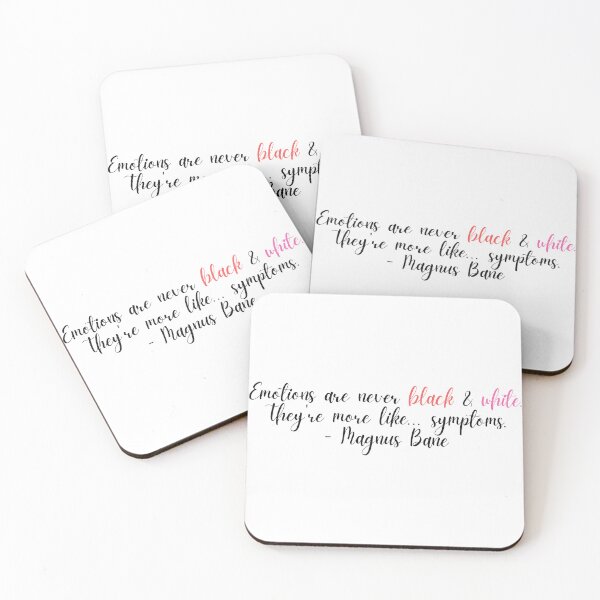 Emotions are never black &
they're
Bane
Emotions are never black & white.
they're more like... symptoms.
- Magnus Bane
Emotions are never black & white.
they're more like... symptoms.
- Magnus Bane
Emotions are never black & white.
they're more like... symptoms.
- Magnus Bane